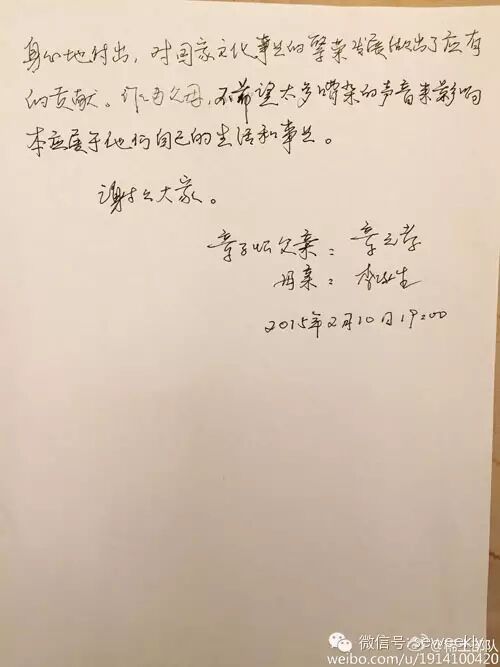 身心地付出，对国家文化事业的繁荣发展做出了应有
的贡献。作为父母，不希望太多嘈杂的声音来影响
本应属于他们自己的生活和事业。
谢谢大家。
章子怡父亲：章元孝
母亲：李涿生
2015年2月10日19:00
微信号: eweekly
weibo.com/u/1914100420